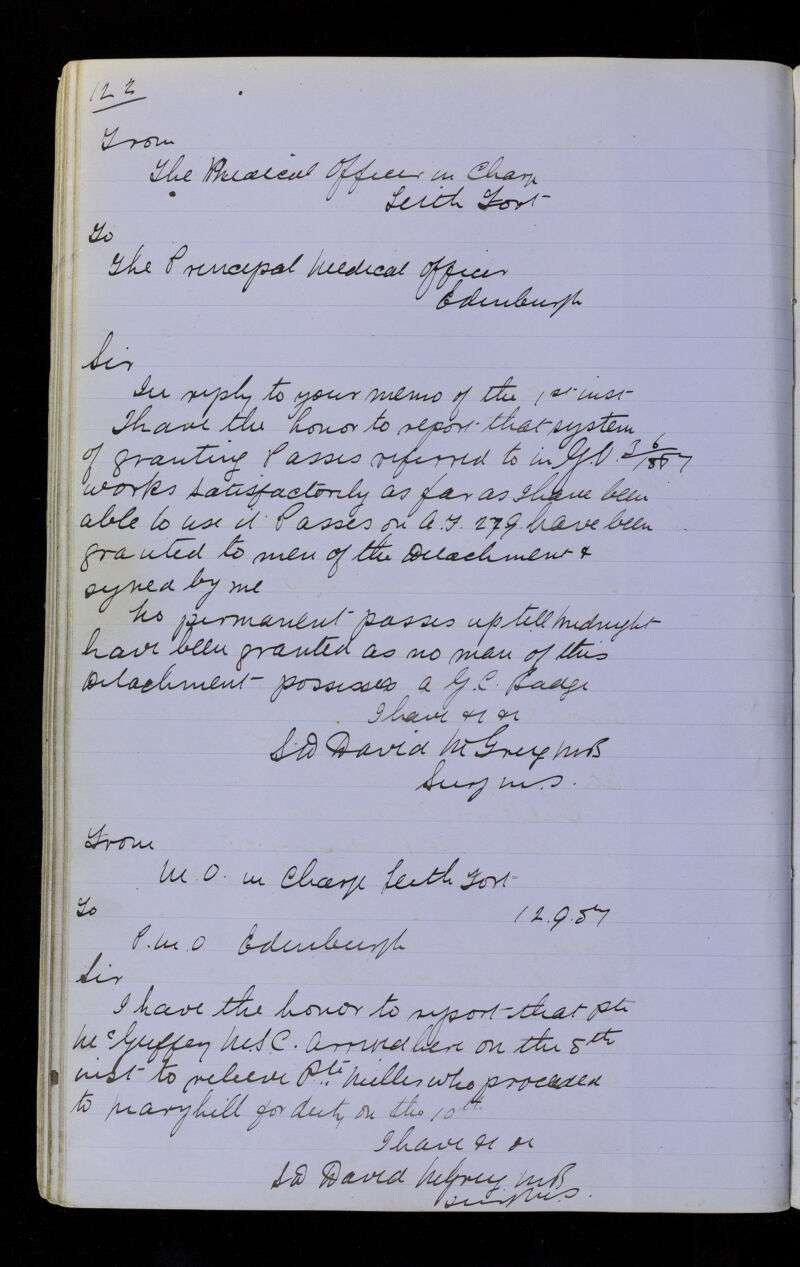 122
From
The Medical Officer in Charge
Leith Fort
To
The Principal Medical Officer
Edinburgh
Sir
In reply to your memo of the 1st inst
I have the honor to report that system
of granting Passes referred to in G.O.
works satisfactorily as far as I have been
able to use it Passes on A.F. 279 have been
granted to men of the Detachment &
signed by me
No permanent passes up till Midnight
have been granted as no man of this
Detachment possesses a G.C. Badge
I have &c &c
Sd David McGreig MB
Surg M.S.
From
M.O. in Charge Leith Fort
To
12.9.87
P.M.O Edinburgh
Sir
I have the honor to report that Pte
McGuffey M.S.C. arrived here on the 8th
inst to relieve Pte Miller who proceeded
to Maryhill for duty on the 10th
I have &c &c
Sd David McGreig MB
Surg M.S.